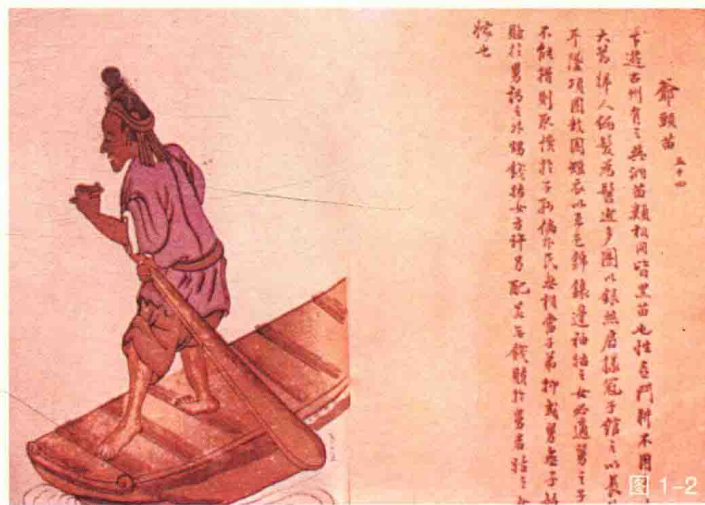 爺頭苗 五十四
遊古州有之與洞苗類相同皆黑苗也性喜鬥耕不用
大等婦人編髮為髻近多圍以銀絲扇樣冠子綰之以長
耳墜項圈數圍短衣以五色錦鑲邊袖姑之女必適舅之子
不能措則取償於子孫倘外氏無相當子弟抑或舅無子
於舅謂之外甥錢姑女方許另配若無錢賄於舅者姑之女
圖 1-2